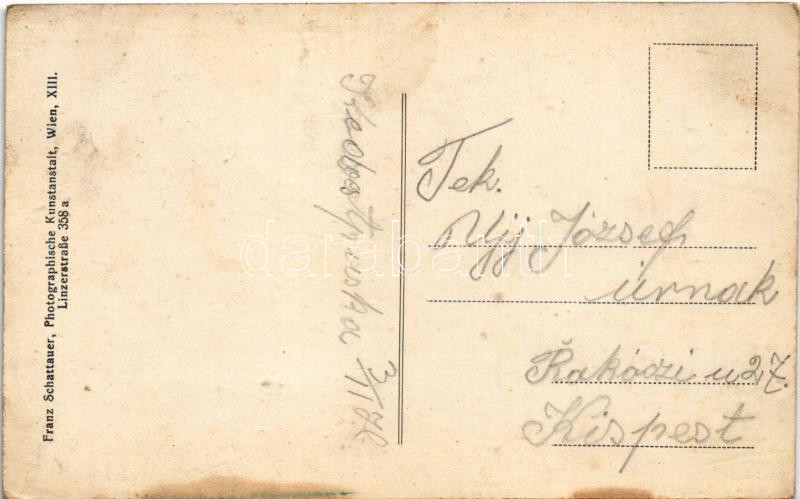 Franz Schattauer, Photographische Kunstanstalt, Wien, XIII.
Linzerstraße 358 a
Tek.
Ujj József
úrnak
Rakóczi u 27.
Kispest
darabanth